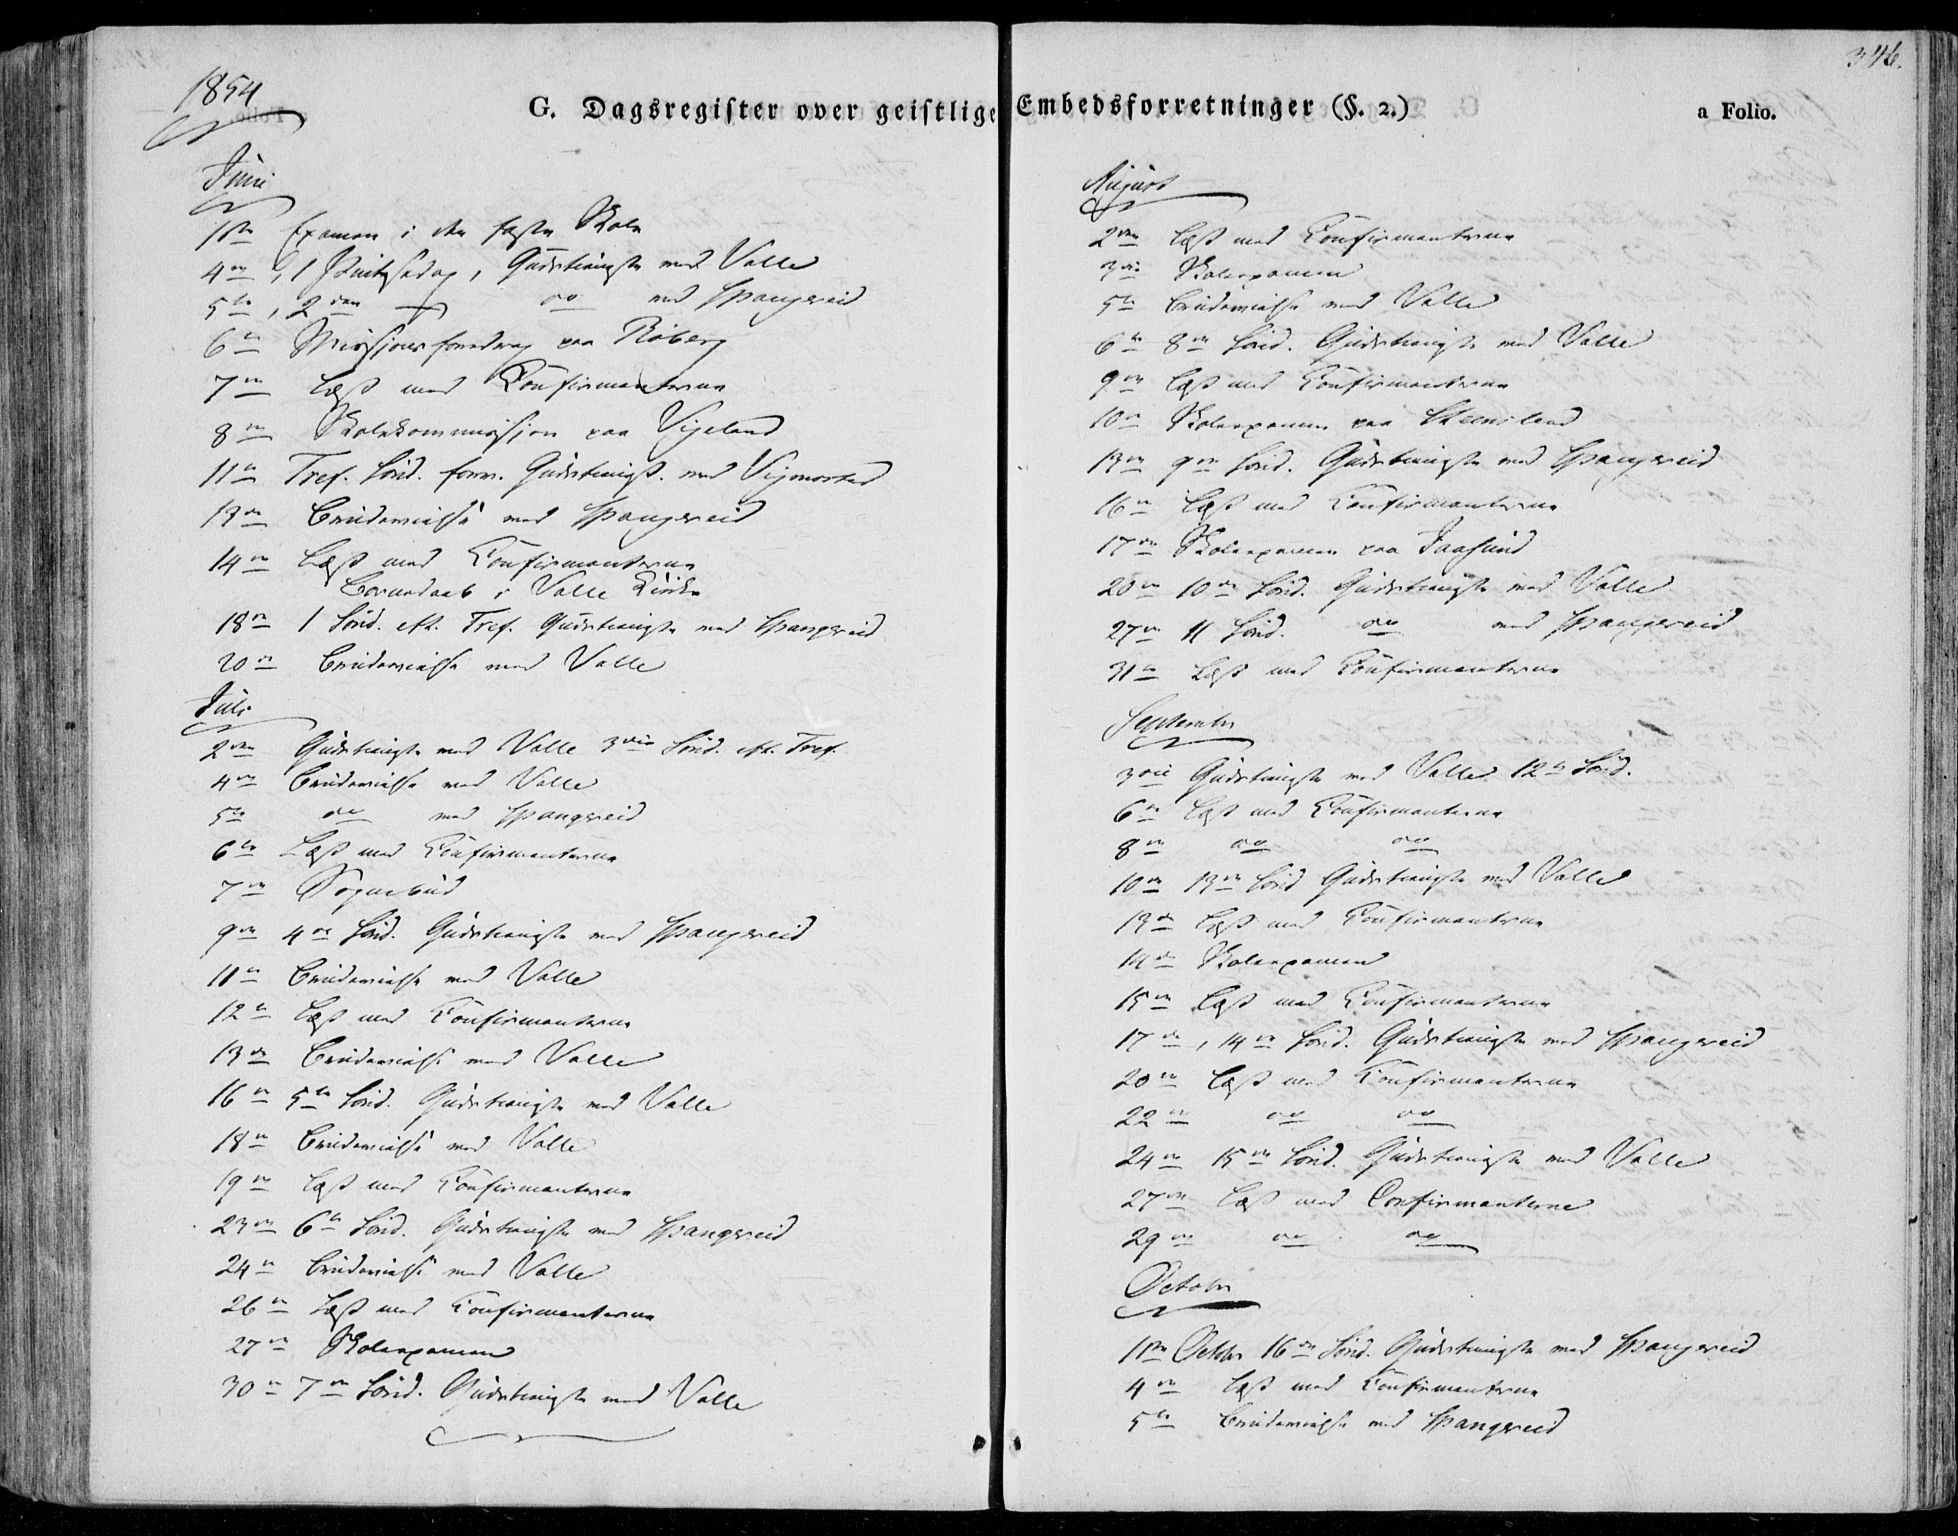 1854
G. Dagsregister over geistlige Embedsforretninger (§. 2.)
a Folio.
346.
Juni
1ste Examen i den faste Skole
4de, 1 Pintsedag, Gudstieneste ved Valle
5te, 2den — do ved Spangereid
6te Missionsforedrag paa Roberg
7de Læst med Confirmanterne
8de Skolekommission paa Vigeland
11te Tref. Sønd. forr. Gudstienest. ved Vigmostad
13de Brudevielse ved Spangereid
14de Læst med Confirmanterne
Barnedaab i Valle Kirke
18de 1 Sønd. eft. Tref. Gudstieneste ved Spangereid
20de Brudevielse ved Valle
Juli
2den Gudstieneste ved Valle 3die Sønd. eft. Tref.
4de Brudevielse ved Valle
5te do ved Spangereid
6te Læst med Confirmanterne
7de Sognebud
9de 4de Sønd. Gudstieneste ved Spangereid
11te Brudevielse ved Valle
12te Læst med Confirmanterne
13de Brudevielse ved Valle
16de 5te Sønd. Gudstieneste ved Valle
18de Brudevielse ved Valle
19de Læst med Confirmanterne
23de 6te Sønd. Gudstieneste ved Spangereid
24de Brudevielse ved Valle
26de Læst med Confirmanterne
27de Skoleexamen
30te 7de Sønd. Gudstieneste ved Valle
August
2den Læst med Confirmanterne
3die Skoleexamen
5te Brudevielse ved Valle
6te 8de Sønd. Gudstieneste ved Valle
9de Læst med Confirmanterne
10de Skoleexamen paa
13de 9de Sønd. Gudstieneste ved Spangereid
16de Læst med Confirmanterne
17de Skoleexamen paa Jaasund
20de 10de Sønd. Gudstieneste ved Valle
27de 11 Sønd. do ved Spangereid
31te Læst med Confirmanterne
September
3die Gudstieneste ved Valle 12te Sønd.
6te Læst med Confirmanterne
8de do do
10de 13de Sønd Gudstieneste ved Valle
13de Læst med Confirmanterne
14de Skoleexamen
15de Læst med Confirmanterne
17de, 14de Sønd. Gudstieneste ved Spangereid
20de Læst med Confirmanterne
22de do do
24de 15de Sønd. Gudstieneste ved Valle
27de Læst med Confirmanterne
29de do do
October
1ste October 16de Sønd. Gudstieneste ved Spangereid
4de Læst med Confirmanterne
5te Brudevielse ved Spangereid